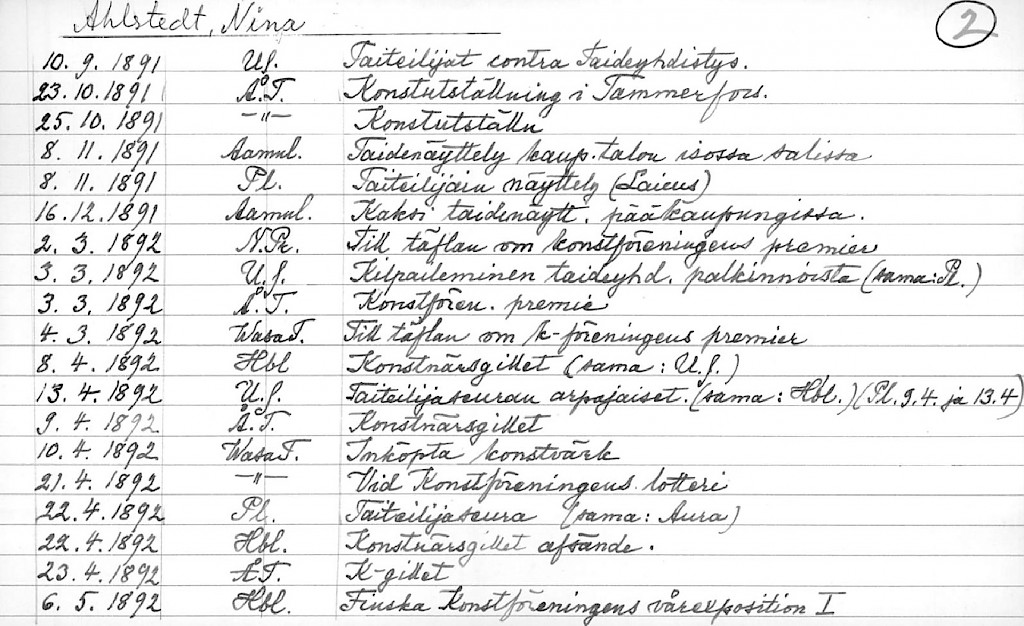 Ahlstedt, Nina
2
10. 9. 1891 U.S. Taiteilijat contra Taideyhdistys.
23.10.1891 Å.T. Konstutställning i Tammerfors.
25.10.1891 —"— Konstutställn
8. 11. 1891 Aamul. Taidenäyttely kaup.talon isossa salissa
8. 11. 1891 Pl. Taiteilijain näyttely (Laicus)
16.12.1891 Aamul. Kaksi taidenäytt. pääkaupungissa.
2. 3. 1892 N.Pr. Till täflan om konstföreningens premier
3. 3. 1892 U.S. Kilpaileminen taideyhd. palkinnoista (sama: Pl.)
3. 3. 1892 Å.T. Konstfören. premie
4. 3. 1892 Wasa T. Till täflan om k-föreningens premier
8. 4. 1892 Hbl Konstnärsgillet (sama: U.S.)
13. 4. 1892 U.S. Taiteilijaseuran arpajaiset. (sama: Hbl.) (Pl. 9.4. ja 13.4)
9. 4. 1892 Å.T. Konstnärsgillet
10. 4. 1892 Wasa T. Inköpta konstvärk
21. 4. 1892 —"— Vid Konstföreningens lotteri
22.4.1892 Pl. Taiteilijaseura (sama: Aura)
22. 4. 1892 Hbl. Konstnärsgillet afsände.
23. 4. 1892 Å.T. K-gillet
6. 5. 1892 Hbl. Finska Konstföreningens vårexposition I